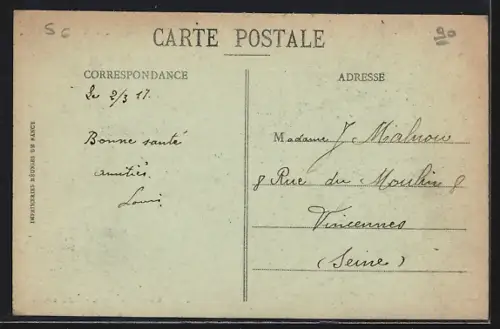 56
CARTE POSTALE
CORRESPONDANCE
Le 2/3 17.
Bonne santé
amitiés
Louis
ADRESSE
Madame J Malnou
8 Rue du Moulin 8
Vincennes
(Seine)
IMPRIMERIES RÉUNIES DE NANCY